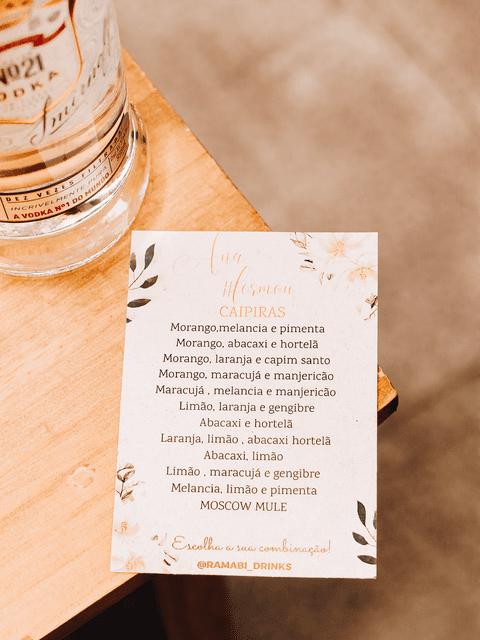 Nº21
VODKA
Smirnoff
DEZ VEZES FILTRADA
INCRIVELMENTE PURA
A VODKA Nº1 DO MUNDO
Ana
#formou
CAIPIRAS
Morango,melancia e pimenta
Morango, abacaxi e hortelã
Morango, laranja e capim santo
Morango, maracujá e manjericão
Maracujá , melancia e manjericão
Limão, laranja e gengibre
Abacaxi e hortelã
Laranja, limão , abacaxi hortelã
Abacaxi, limão
Limão , maracujá e gengibre
Melancia, limão e pimenta
MOSCOW MULE
Escolha a sua combinação!
@RAMABI_DRINKS